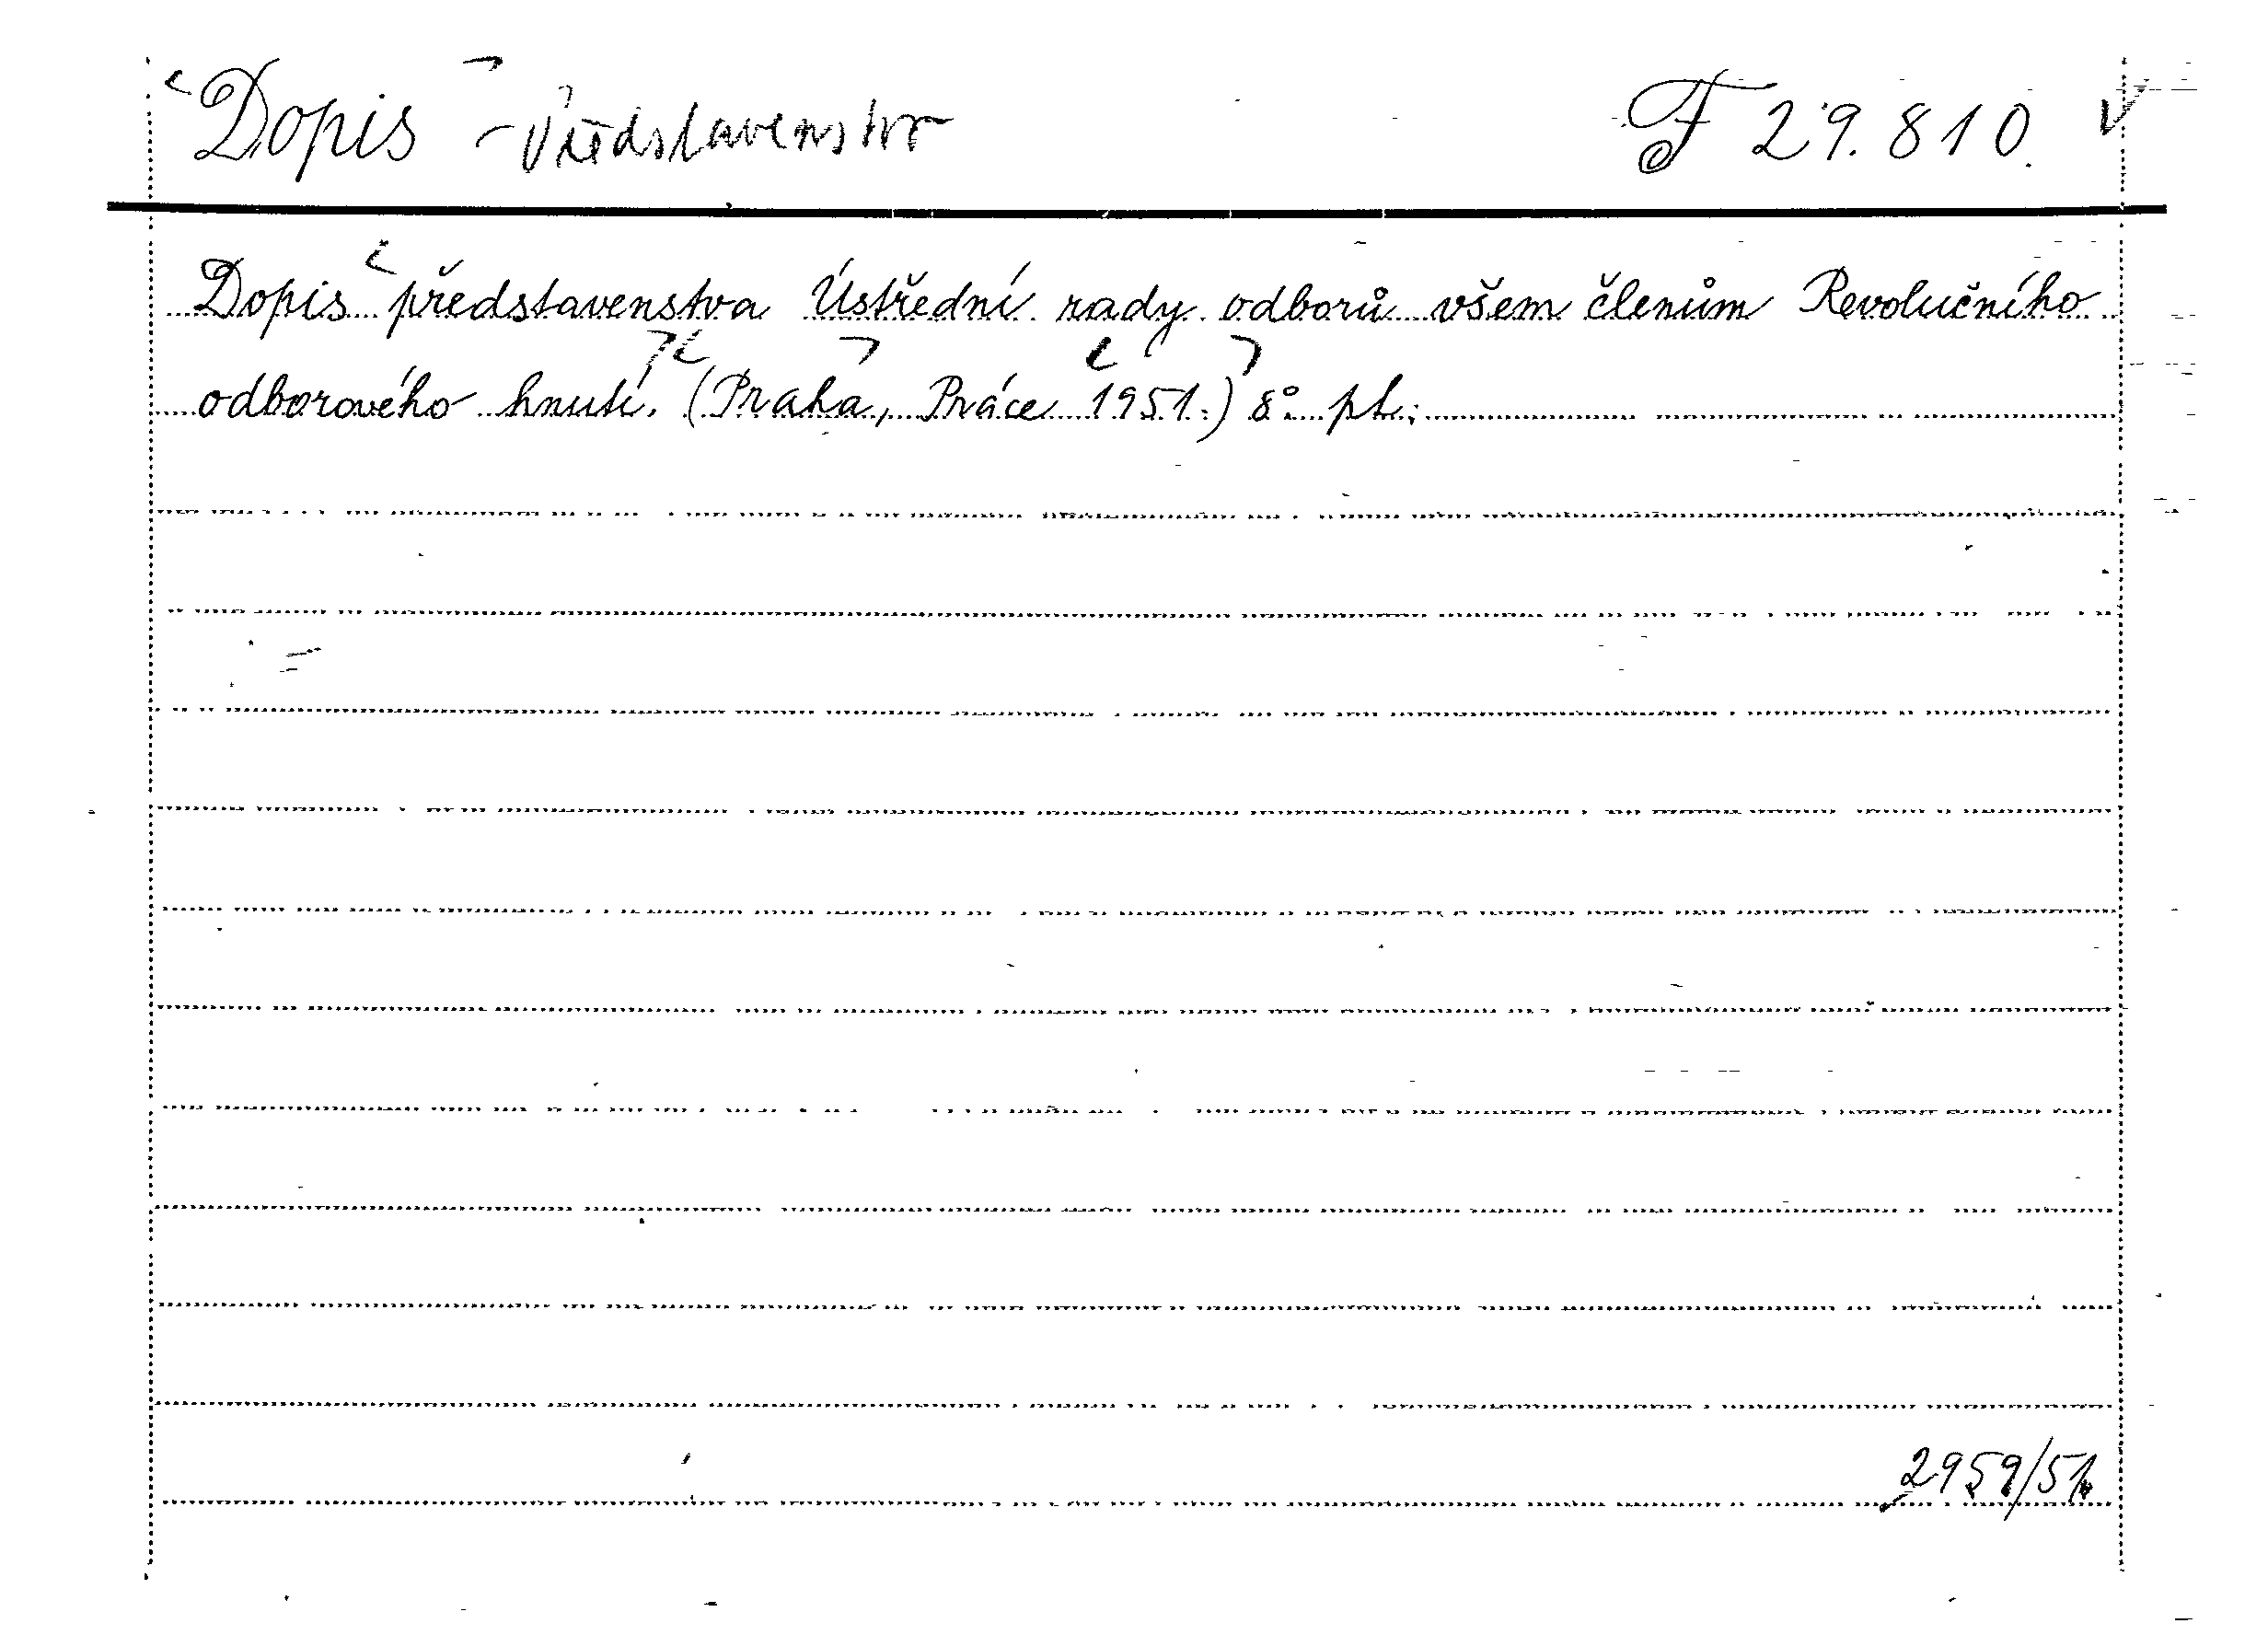 Dopis - Představenstvo F 29.810.
Dopis představenstva Ústřední rady odborů všem členům Revolučního
odborového hnutí. (Praha, Práce 1951.) 8° pl.
2959/51.